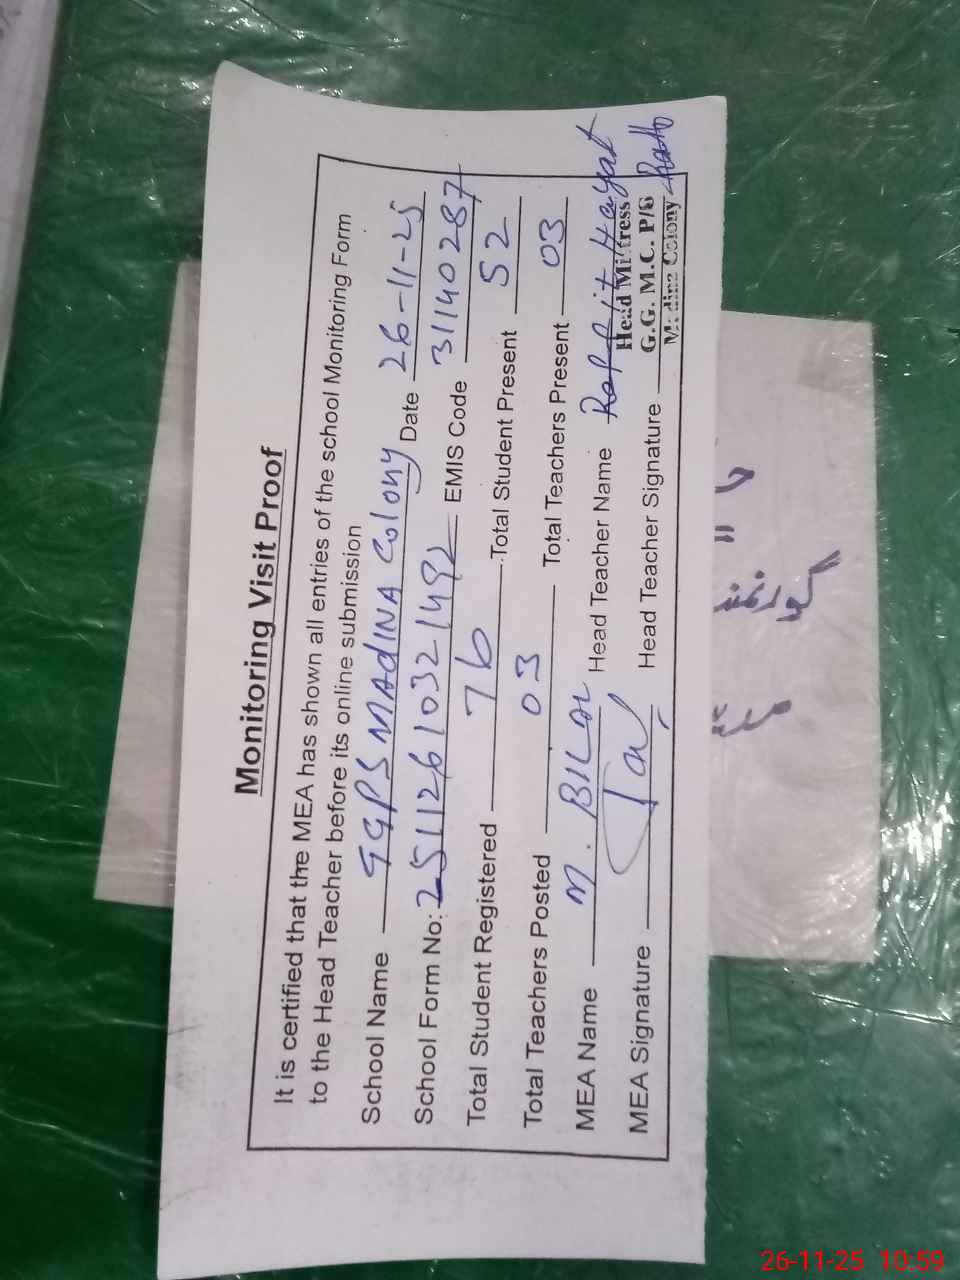 Monitoring Visit Proof
It is certified that the MEA has shown all entries of the school Monitoring Form
to the Head Teacher before its online submission
School Name GGPS MAdINA Colony Date 26-11-25
School Form No: 25112610321492 EMIS Code 31140287
Total Student Registered 76 Total Student Present 52
Total Teachers Posted 03 Total Teachers Present 03
MEA Name M. BILAL Head Teacher Name Hayat
Head Mistress
MEA Signature Head Teacher Signature
G.G. M.C. P/S
Madina Colony
26-11-25 10:59